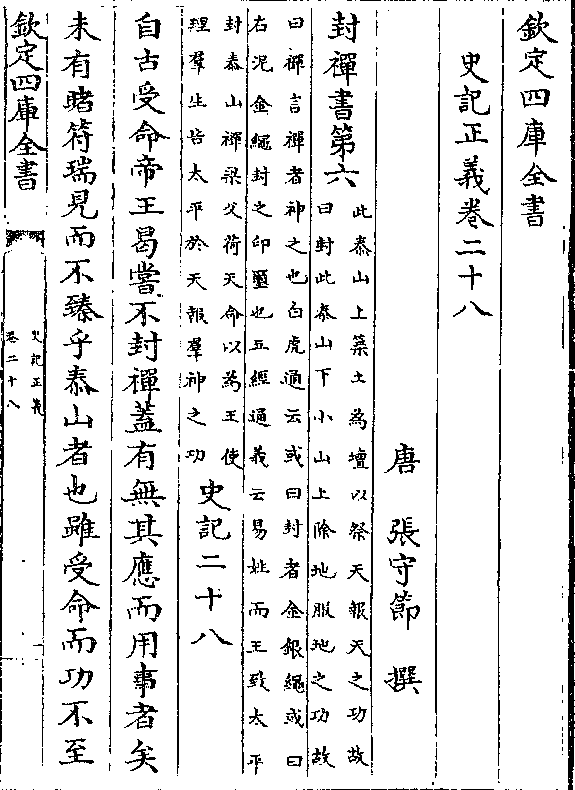 欽定四庫全書
史記正義卷二十八
唐 張守節 撰
封禪書第六
此泰山上築土為壇以祭天報天之功故
曰封此泰山下小山上除地服地之功故
曰禪言禪者神之也白虎通云或曰封者金銀繩或曰
右泥金繩封之印璽也五經通義云易姓而王致太平
封泰山禪梁父荷天命以為王使
理羣生告太平於天報羣神之功
史記二十八
自古受命帝王曷嘗不封禪蓋有無其應而用事者矣
未有睹符瑞見而不臻乎泰山者也雖受命而功不至
欽定四庫全書
史記正義
卷二十八